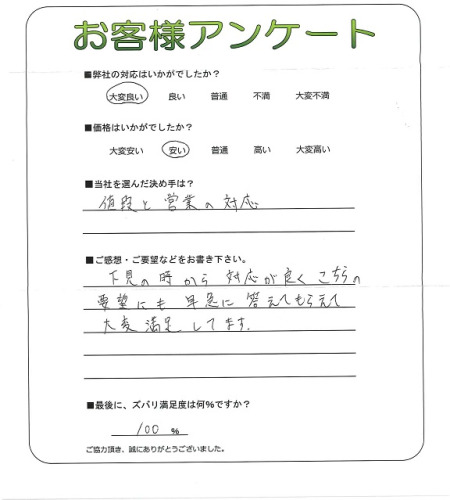 お客様アンケート
■弊社の対応はいかがでしたか？
大変良い 良い 普通 不満 大変不満
■価格はいかがでしたか？
大変安い 安い 普通 高い 大変高い
■当社を選んだ決め手は？
値段と営業の対応
■ご感想・ご要望などをお書き下さい。
下見の時から対応が良くこちらの
要望にも早急に答えてもらえて
大変満足してます。
■最後に、ズバリ満足度は何％ですか？
100 ％
ご協力頂き、誠にありがとうございました。